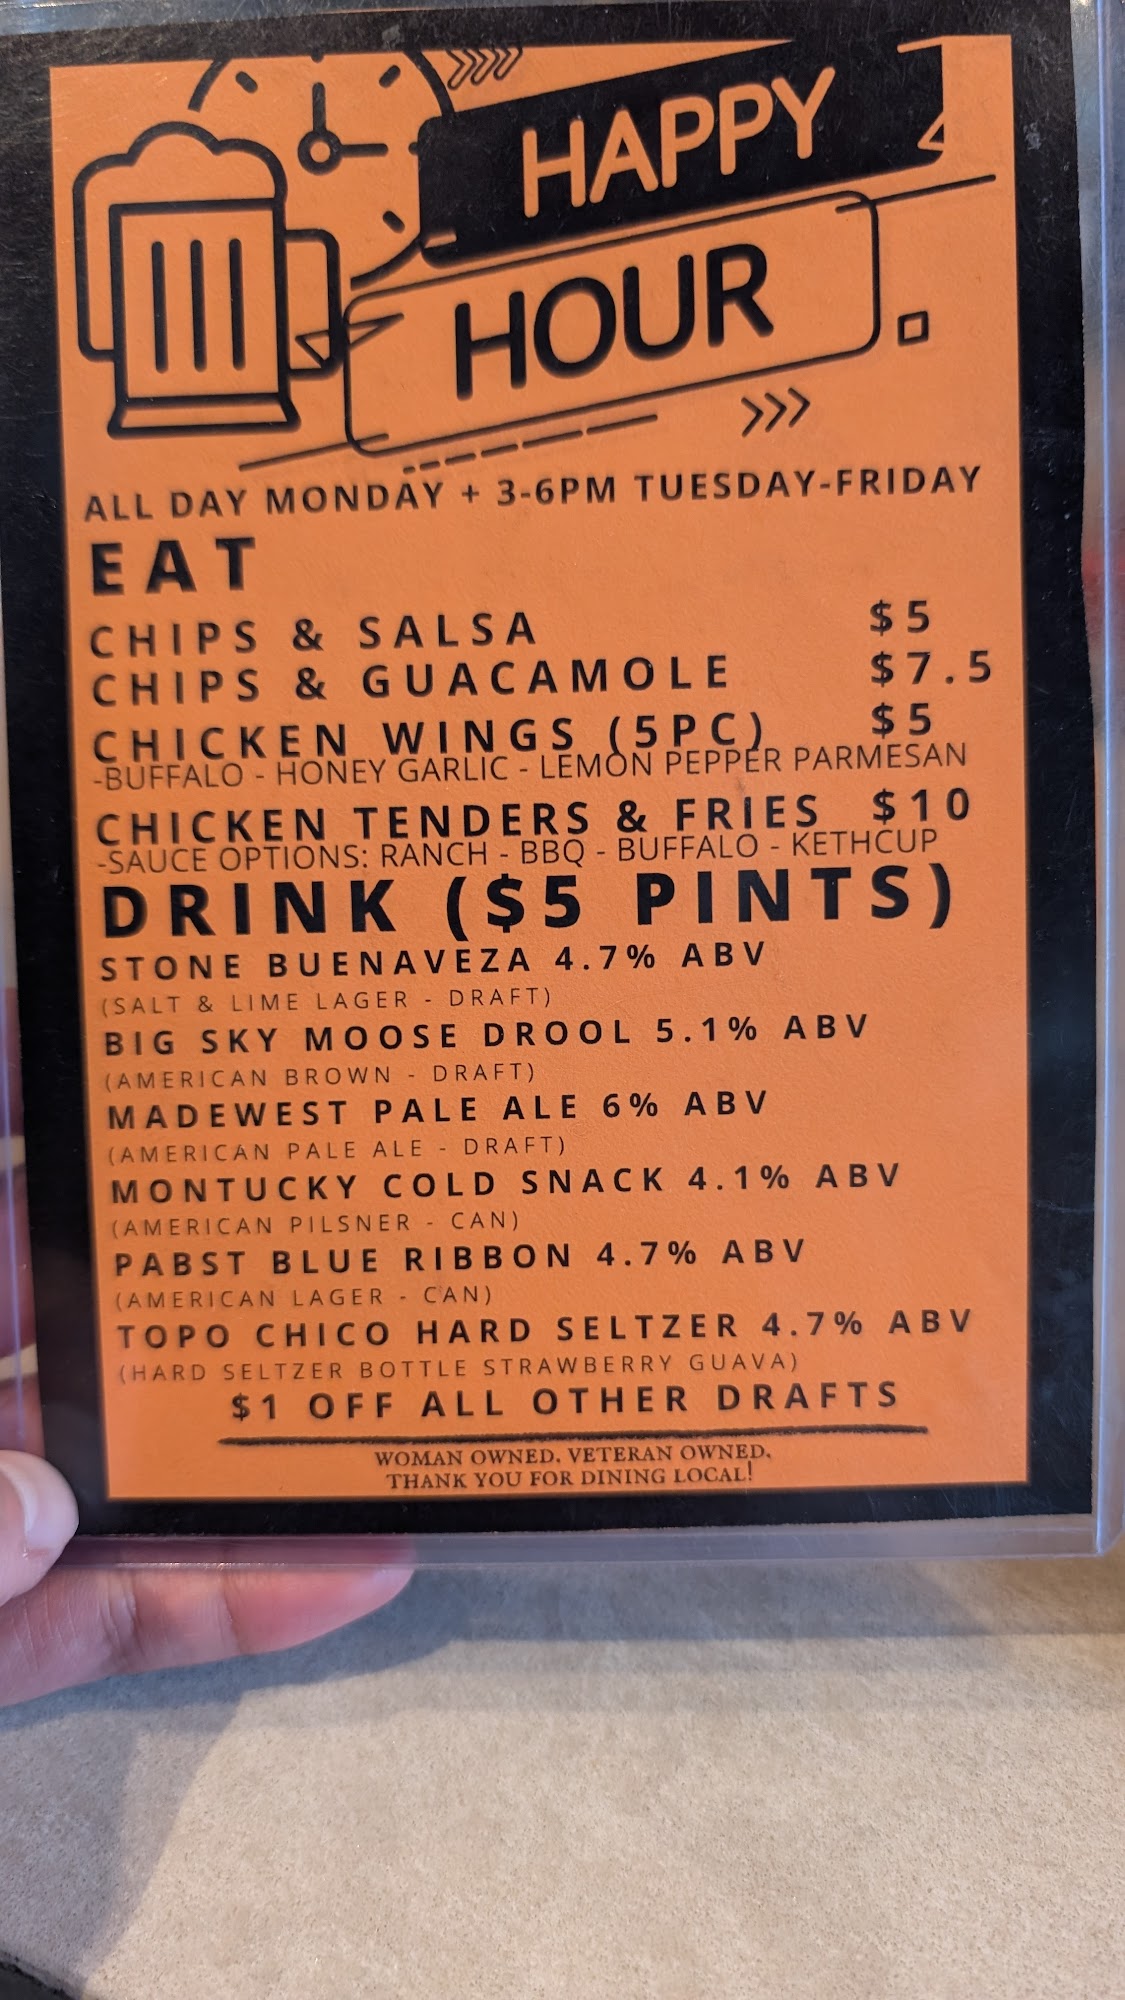 HAPPY
HOUR
ALL DAY MONDAY + 3-6PM TUESDAY-FRIDAY
EAT
CHIPS & SALSA $5
CHIPS & GUACAMOLE $7.5
CHICKEN WINGS (5PC) $5
-BUFFALO - HONEY GARLIC - LEMON PEPPER PARMESAN
CHICKEN TENDERS & FRIES $10
-SAUCE OPTIONS: RANCH - BBQ - BUFFALO - KETHCUP
DRINK ($5 PINTS)
STONE BUENAVEZA 4.7% ABV
(SALT & LIME LAGER - DRAFT)
BIG SKY MOOSE DROOL 5.1% ABV
(AMERICAN BROWN - DRAFT)
MADEWEST PALE ALE 6% ABV
(AMERICAN PALE ALE - DRAFT)
MONTUCKY COLD SNACK 4.1% ABV
(AMERICAN PILSNER - CAN)
PABST BLUE RIBBON 4.7% ABV
(AMERICAN LAGER - CAN)
TOPO CHICO HARD SELTZER 4.7% ABV
(HARD SELTZER BOTTLE STRAWBERRY GUAVA)
$1 OFF ALL OTHER DRAFTS
WOMAN OWNED. VETERAN OWNED.
THANK YOU FOR DINING LOCAL!